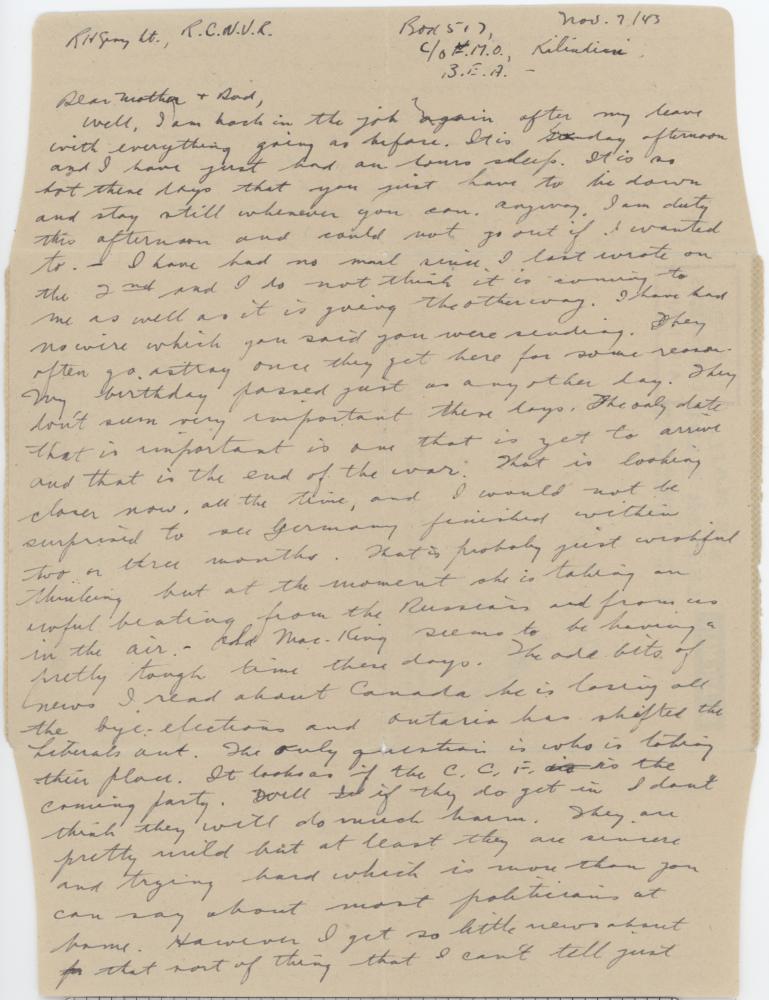 RHGray Lt., R.C.N.V.R.
Box 517,
Nov. 7/43
c/o F.M.O., Kilindini
B.E.A. -
Dear Mother + Dad,
Well, I am back in the job again after my leave
with everything going as before. It is Sunday afternoon
and I have just had an hours sleep. It is so
hot these days that you just have to lie down
and stay still whenever you can. Anyway, I am duty
this afternoon and could not go out if I wanted
to. - I have had no mail since I last wrote on
the 2nd and I do not think it is coming to
me as well as it is going the other way. I have had
no wire which you said you were sending. They
often go astray once they get here for some reason.
My birthday passed just as any other day. They
don't seem very important these days. The only date
that is important is one that is yet to arrive
and that is the end of the war. That is looking
closer now, all the time, and I would not be
surprised to see Germany finished within
two or three months. That is probably just wishful
thinking but at the moment she is taking an
awful beating from the Russians and from us
in the air. - Old Mac-King seems to be having a
pretty tough time these days. The odd bits of
news I read about Canada he is losing all
the bye-elections and Ontario has shifted the
Liberals out. The only question is who is taking
their place. It looks as if the C.C.F. is the
coming party. Well if they do get in I don't
think they will do much harm. They are
pretty mild but at least they are sincere
and trying hard which is more than you
can say about most politicians at
home. However I get so little news about
that sort of thing that I can't tell just